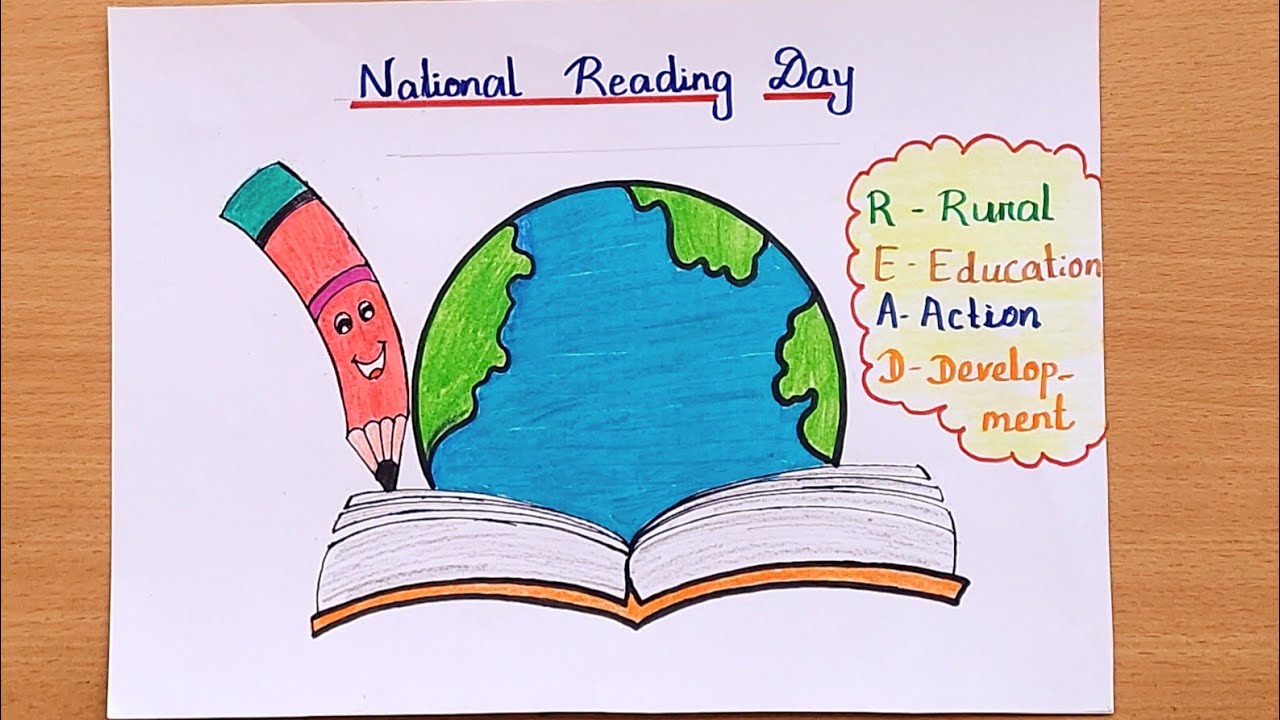 National Reading Day
R - Rural
E - Education
A- Action
D- Develop-
ment